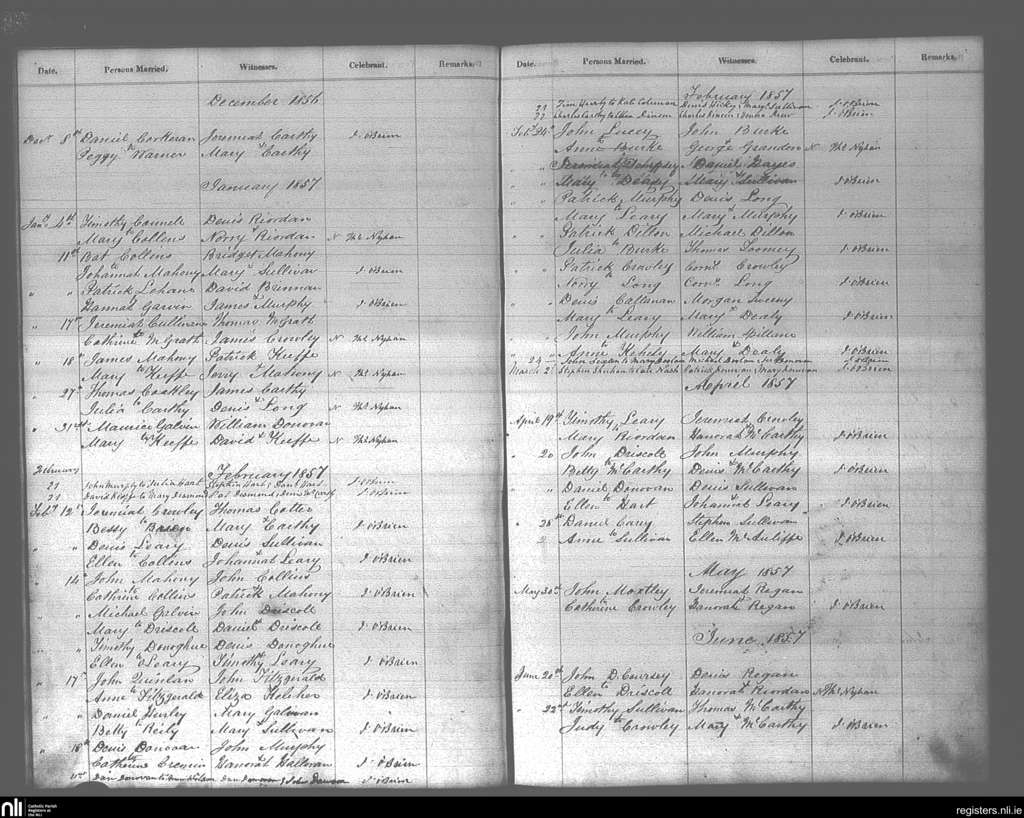 Date. Persons Married. Witnesses. Celebrant. Remarks.
December 1856
Decr 8th Daniel Corkeran Jeremiah Carthy D. O'Brien
Peggy to Warner Mary & Carthy
January 1857
Jany 4th Timothy Connell Denis Riordan
Mary to Collens Norry & Riordan N Ml Nyhan
11th Bat Collens Bridget Mahony
Johannah to Mahony Mary & Sullivan D O'Brien
" " Patrick Lehane David Brennan
Hannah Garvin James & Murphy D O'Brien
" 17th Jeremiah Cullinan Thomas McGrath
Cathrine to McGrath James Crowley N Ml Nyhan
" 18th James Mahony Patrick Keeffe
Mary to Keeffe Jerry & Mahony N Ml Nyhan
" 27th Thomas Coakley James Carthy
Julia to Carthy Denis & Long N Ml Nyhan
" 31st Maurice Galvin William Donovan
Mary to Keeffe David & Keeffe N Ml Nyhan
February
February 1857
21 John Murphy to Julia D O'Brien
21 David Keeffe to Mary Desmond Pat Desmond & Denis D O'Brien
Feby 12th Jeremiah Crowley Thomas Cotter
Bessy to Mary & Carthy D O'Brien
" " Denis Leary Denis Sullivan
Ellen to Collens Johannah & Leary D O'Brien
" 14th John Mahony John Collins
Cathrine to Collins Patrick & Mahony D O'Brien
" " Michael Galvin John Driscoll
Mary to Driscoll Daniel & Driscoll D O'Brien
" " Timothy Donoghue Denis Donoghue
Ellen to Leary Timothy & Leary D O'Brien
" 17th John Quinlan John Fitzgerald
Anne to Fitzgerald Eliza & Keleher D O'Brien
" " Daniel Hurley Mary Galwan
Betty to Keily Mary & Sullivan D O'Brien
" 18th Denis Donovan John Murphy
Cathrine to Cremin Hanorah & Halloran D O'Brien
Dan Donovan to Dan Donovan & John D O'Brien
Date. Persons Married. Witnesses. Celebrant. Remarks.
February 1857
21 Tim Hurly to Kate Coleman Denis Hicky & Mary Sullivan D O'Brien
22 Charles Carthy to Ellen D O'Brien
Feby 24th John Lucey John Burke
Anne to Burke George Grandon N Ml Nyhan
" " Jeremiah Dempsey Daniel Hayes
" " Mary to Deasy Mary & Sullivan D O'Brien
" " Patrick Murphy Denis Long
Mary to Leary Mary & Murphy D O'Brien
" " Patrick Dillon Michael Dillon
Julia to Burke Thomas Toomey D O'Brien
" " Patrick Crowley Corns Crowley
Norry to Long Corns & Long D O'Brien
" " Denis Callanan Morgan Sweeny
Mary to Leary Mary & Dealy D O'Brien
" " John Murphy William Spillane
" " Anne to Kehely Mary & Dealy D O'Brien
" 24 " John to Mary D O'Brien
March 2 Stephen Sheehan to Kate Nash D O'Brien
April 1857
April 19th Timothy Leary Jeremiah Crowley
" Mary to Riordan Hanorah & McCarthy D O'Brien
" 20 John Driscoll John Murphy
Betty to McCarthy Denis & McCarthy D O'Brien
" " Daniel Donovan Denis Sullivan
Ellen to Hart Johannah & Leary D O'Brien
" 28th Daniel Carey Stephen Sullivan
Anne to Sullivan Ellen McAuliffe D O'Brien
May 1857
May 30th John Moxtley Jeremiah Regan
Cathrine to Crowley Hanorah & Regan D O'Brien
June 1857
June 20th John D. Coursey Denis Regan
Ellen to Driscoll Hanorah & Riordan N Ml Nyhan
" 22nd Timothy Sullivan Thomas McCarthy
Judy to Crowley Mary & McCarthy D O'Brien
nli Catholic Parish Registers at the NLI
registers.nli.ie